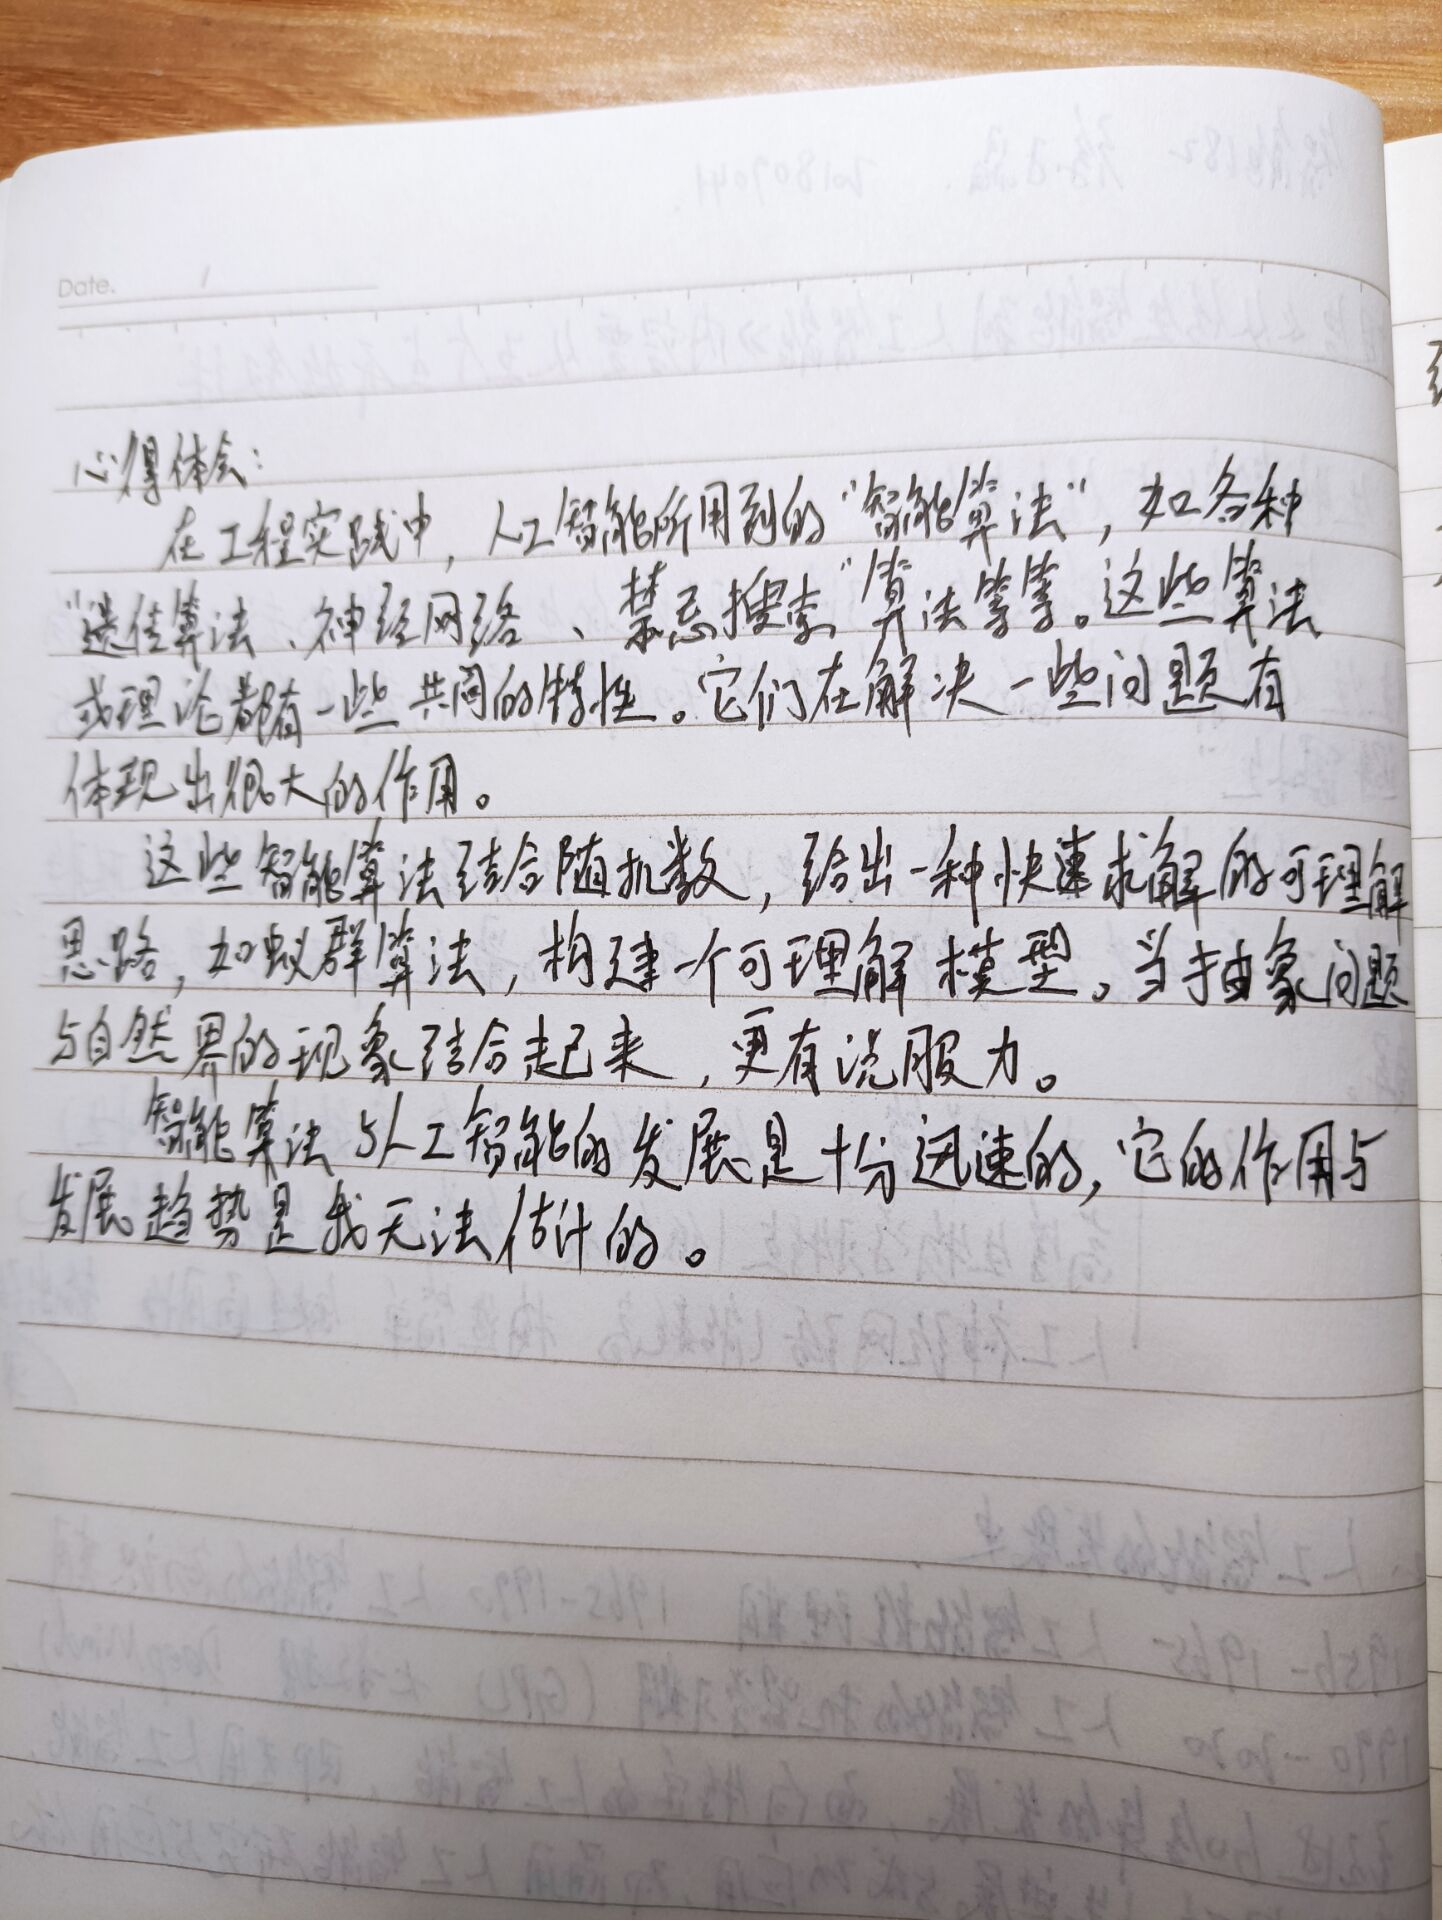 Date.
心得体会:
在工程实践中,人工智能所用到的“智能算法”,如各种
“遗传算法、神经网络、禁忌搜索”算法等等。这些算法
或理论都有一些共同的特性。它们在解决一些问题有
体现出很大的作用。
这些智能算法结合随机数,给出一种快速求解的可理解
思路,如蚁群算法,构建一个可理解模型。当抽象问题
与自然界的现象结合起来,更有说服力。
智能算法与人工智能的发展是十分迅速的,它的作用与
发展趋势是我无法估计的。